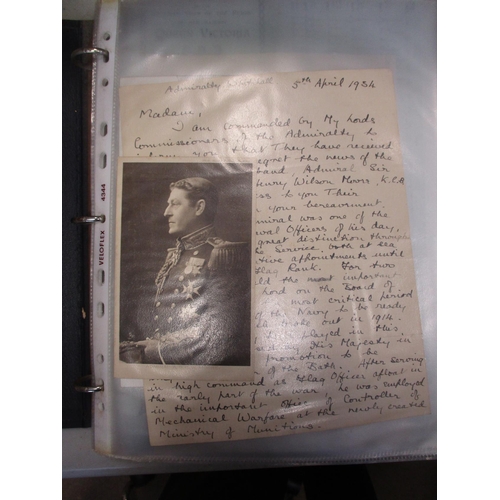 Admiralty, Whitehall
5th April 1934
Madam,
I am commanded by My Lords
Commissioners of the Admiralty to
you that They have received
egret the news of the
band, Admiral Sir
enry Wilson Moore, K.C.B.
ess to you Their
n your bereavement.
miral was one of the
val Officers of his day,
great distinction through
he Service both at sea
tive appointments until
Flag Rank. For two
ld the most important
Lord on the Board of
most critical period
of the Navy to be ready
broke out in 1914.
layed in this
His Majesty in
promotion to be
of the Bath. After serving
in high command as Flag Officer afloat in
the early part of the war, he was employed
in the important Office of Controller of
Mechanical Warfare at the newly created
Ministry of Munitions.
VELOFLEX 4344